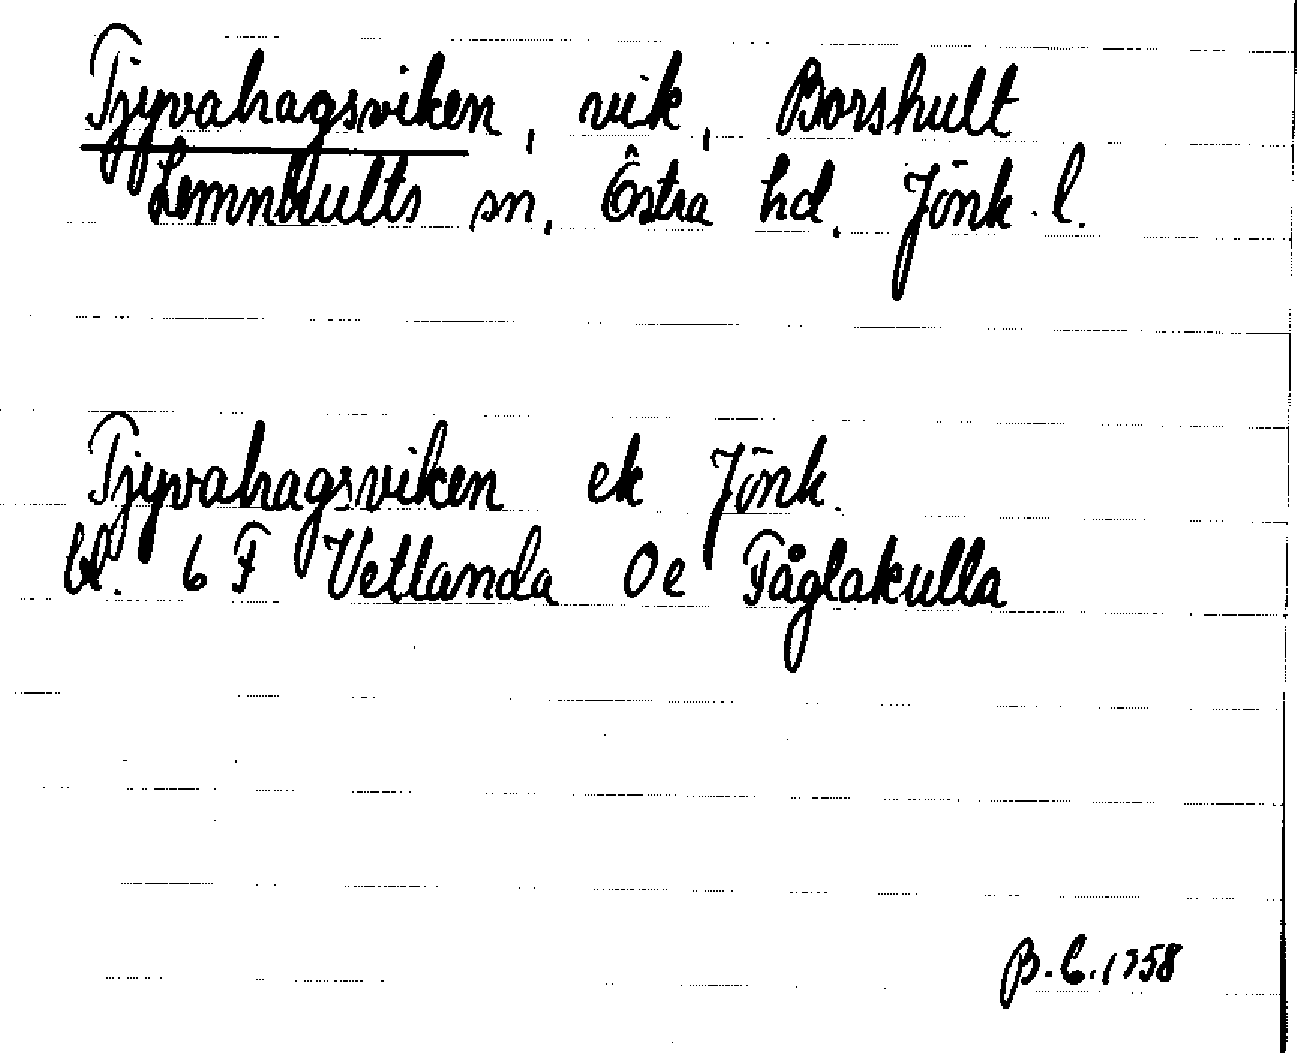 Tjyvahagsviken, vik, Borshult
Lemnhults sn, Östra hd, Jönk. l.
Tjyvahagsviken ek Jönk.
bl. 6 F Vetlanda 0e Fåglakulla
B.C. 1958